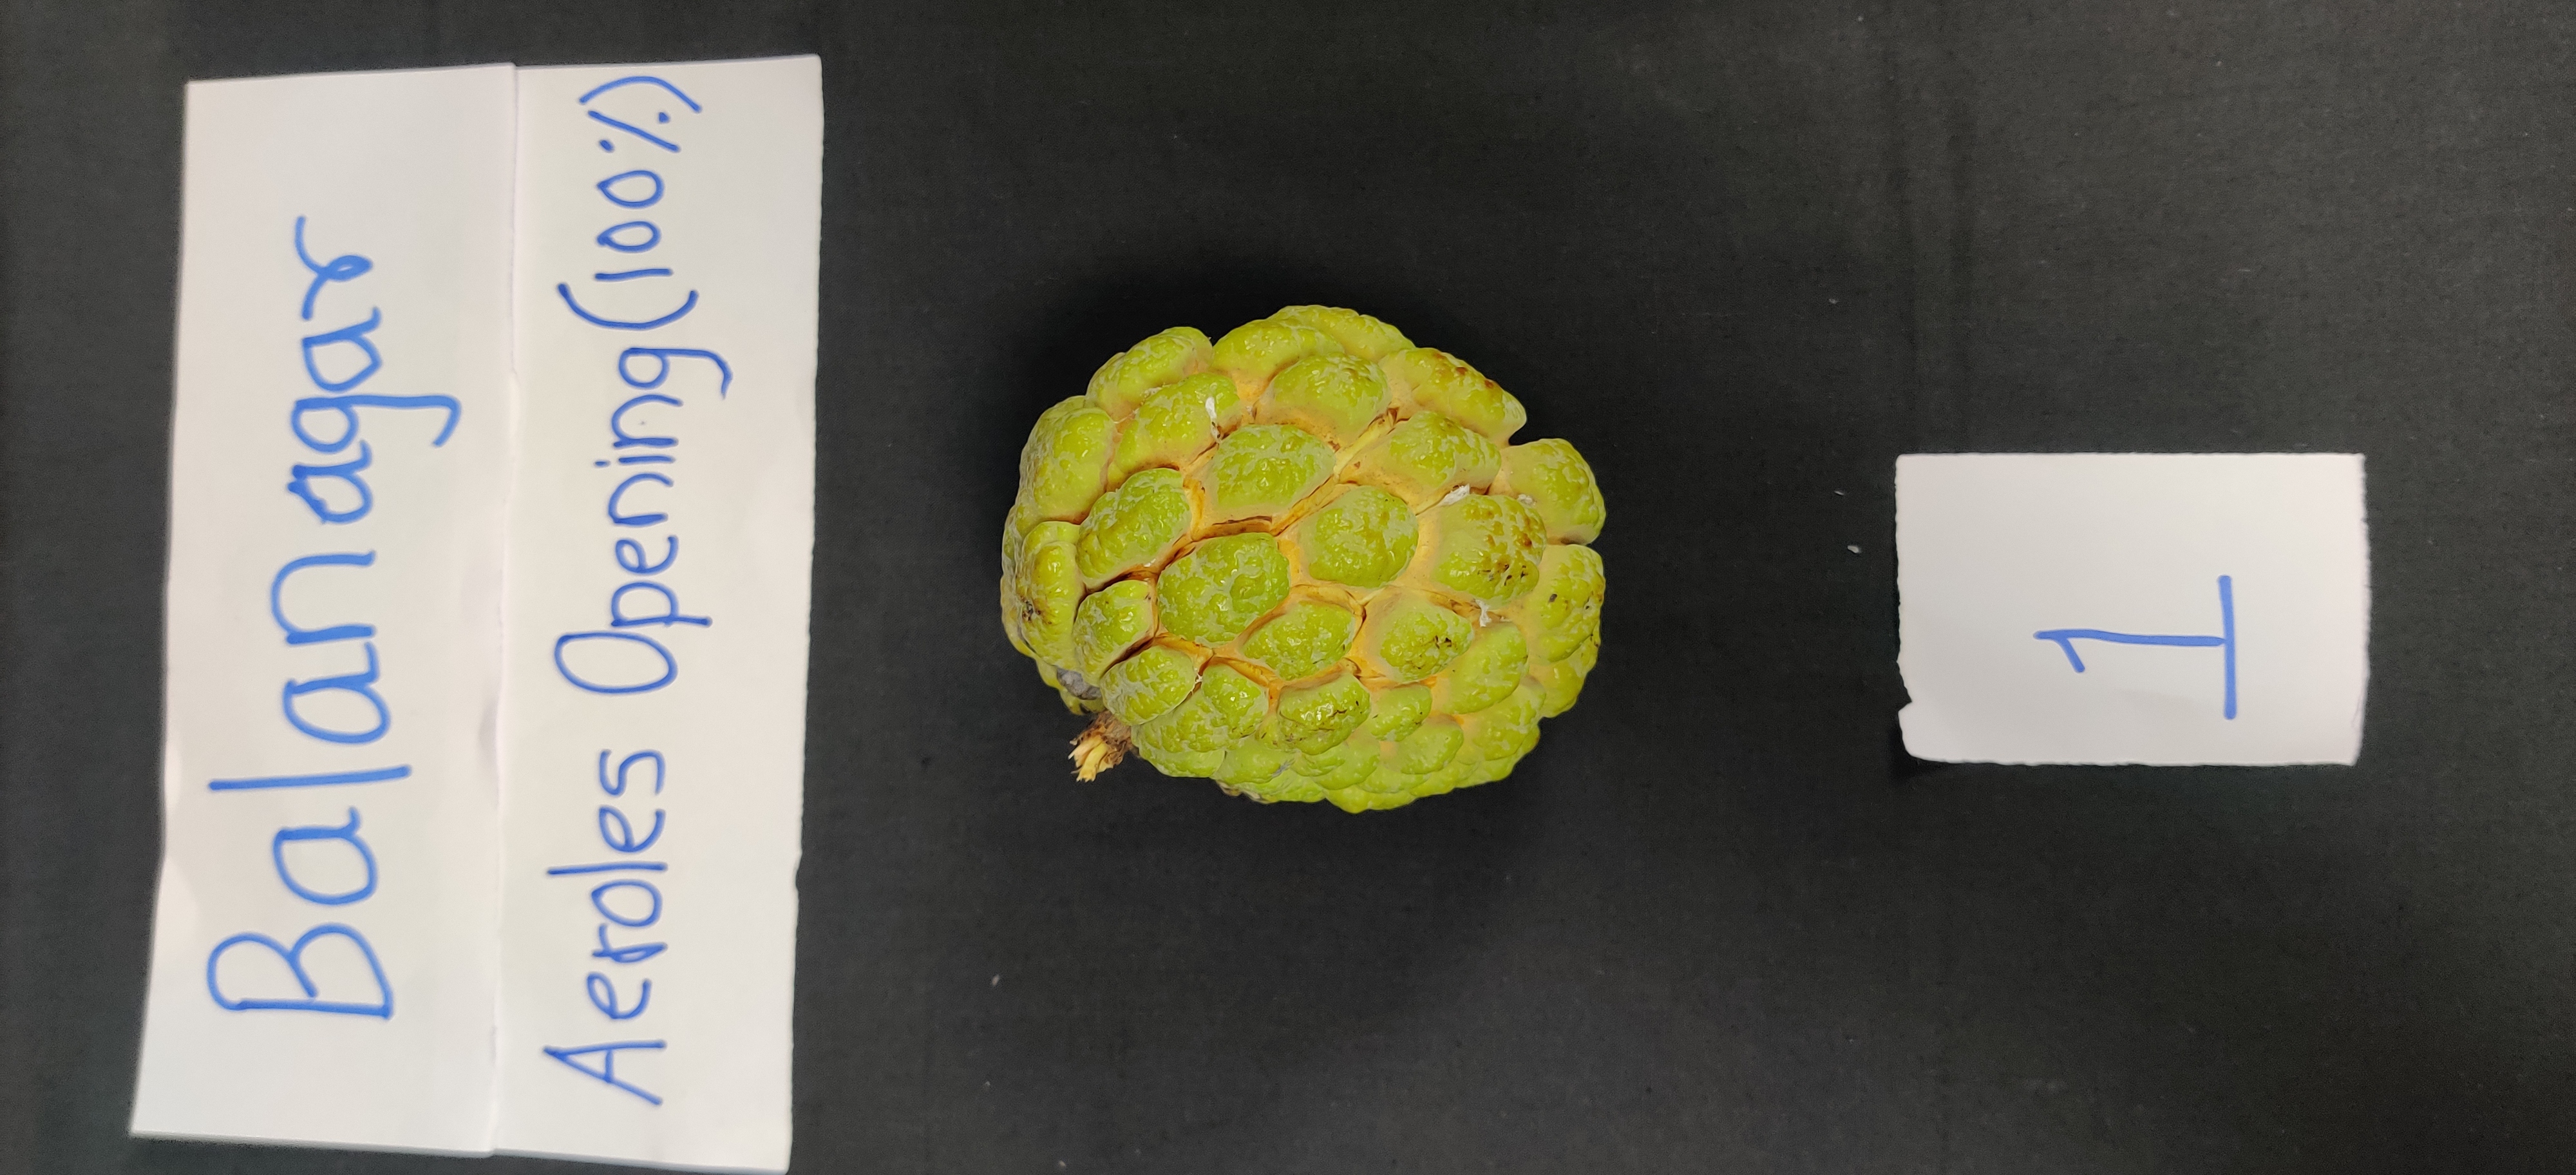 Balanagar
Aeroles Opening (100%)
1